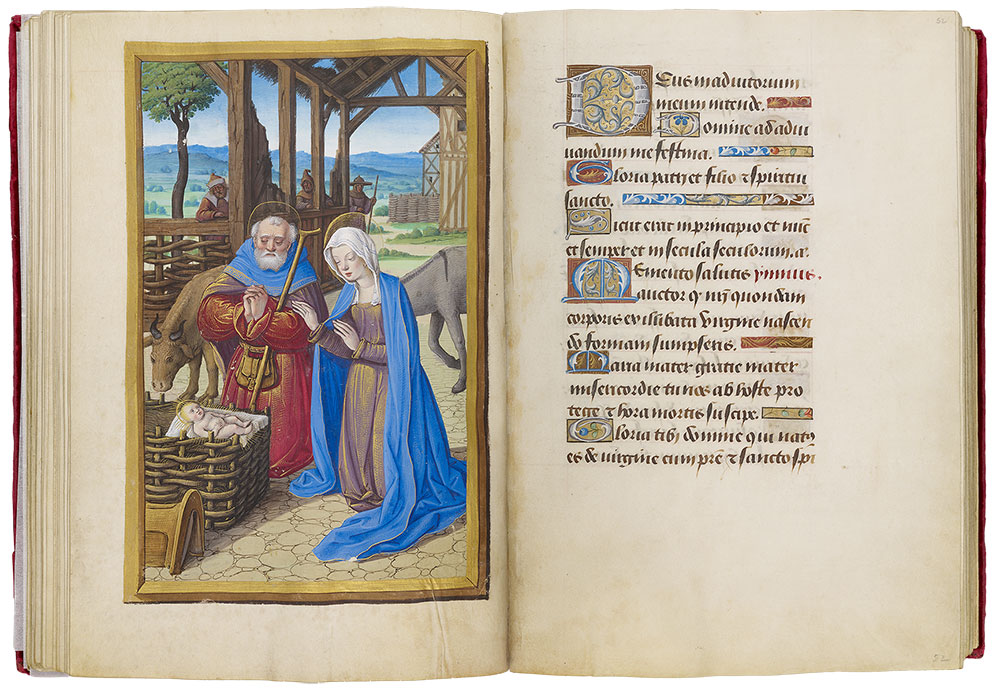 52
Deus in adiutorium
meum intende.
Domine ad adiu
uandum me festina.
Gloria patri et filio ⁊ spiritui
sancto.
Sicut erat in principio et nūc
et semper et in secula seculorum. a.
Memento salutis ymnus.
auctor qꝫ nr̄i quondam
corporis ex ilibata virgine nascen
do formam sumpseris.
Maria mater gratie mater
misericordie tu nos ab hoste pro
tege ⁊ hora mortis suscipe.
Gloria tibi domine qui natꝰ
es de virgine cum pr̄e ⁊ sancto sp̄i
52